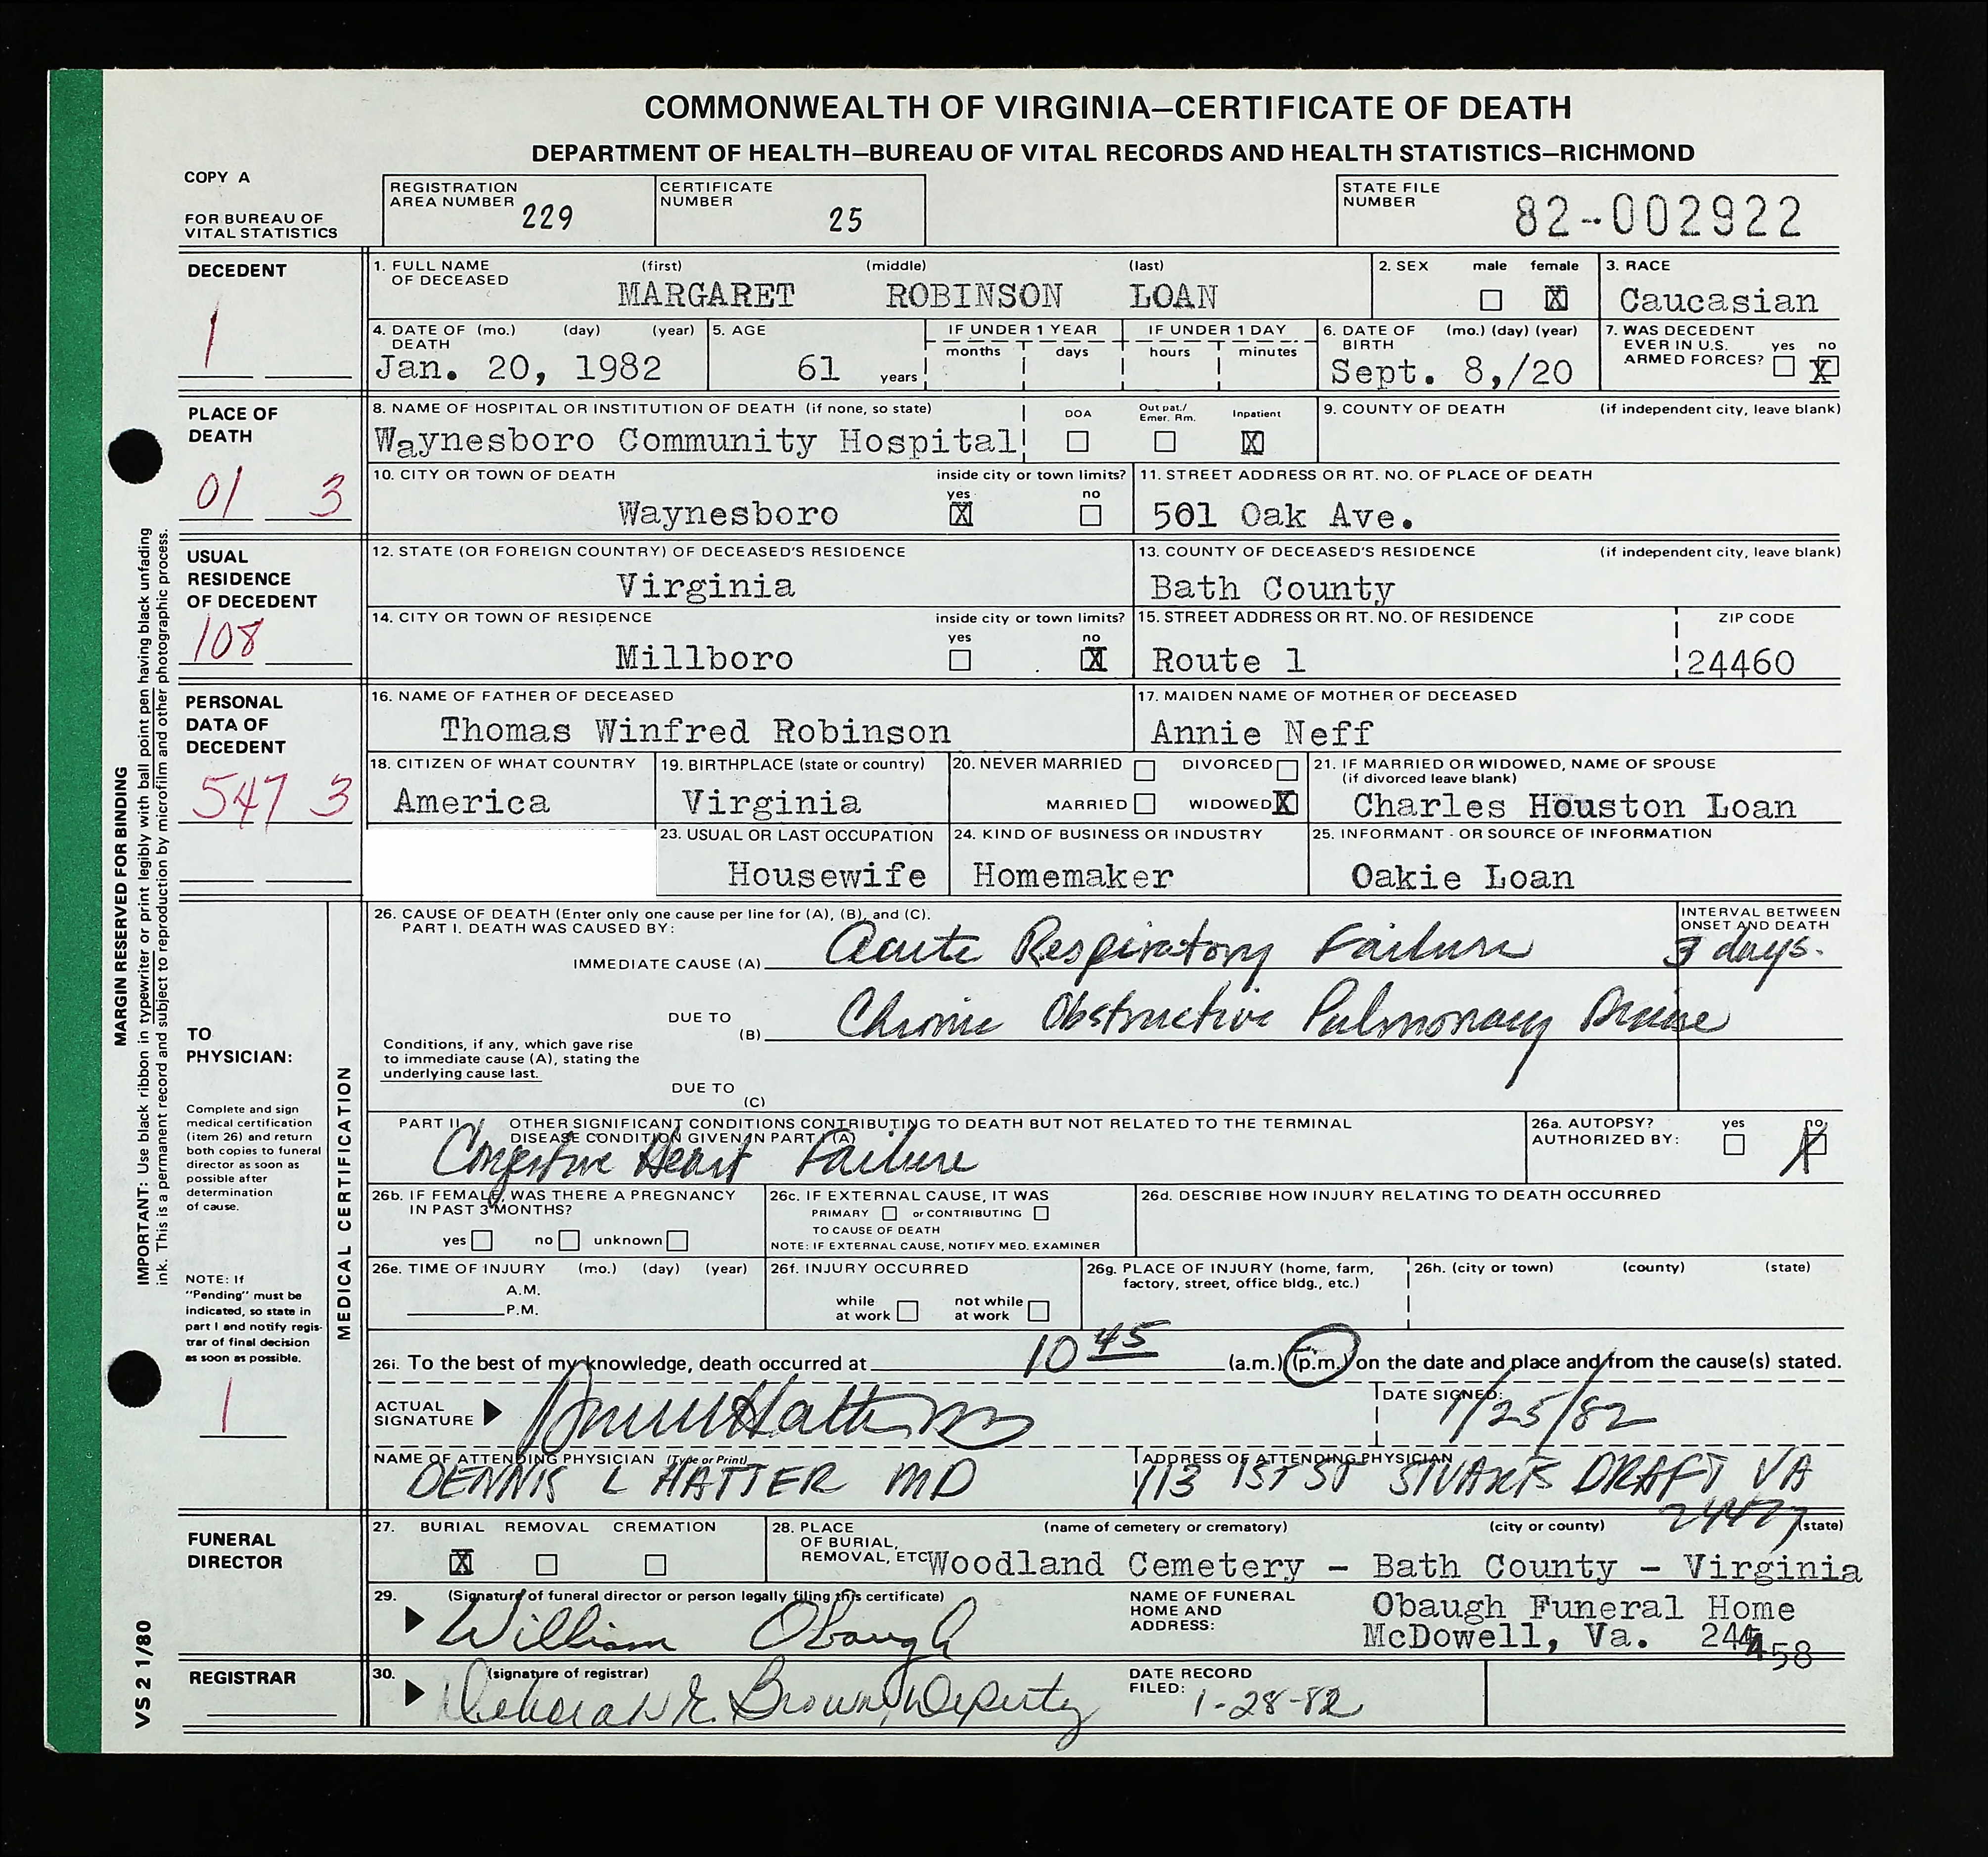 COMMONWEALTH OF VIRGINIA—CERTIFICATE OF DEATH
DEPARTMENT OF HEALTH—BUREAU OF VITAL RECORDS AND HEALTH STATISTICS—RICHMOND
COPY A
FOR BUREAU OF
VITAL STATISTICS
REGISTRATION
AREA NUMBER 229
CERTIFICATE
NUMBER 25
STATE FILE
NUMBER 82-002922
DECEDENT
1
1. FULL NAME (first) (middle) (last)
OF DECEASED
MARGARET ROBINSON LOAN
2. SEX male female
X
3. RACE
Caucasian
4. DATE OF (mo.) (day) (year)
DEATH
Jan. 20, 1982
5. AGE
61 years
IF UNDER 1 YEAR
months days
IF UNDER 1 DAY
hours minutes
6. DATE OF (mo.) (day) (year)
BIRTH
Sept. 8,/20
7. WAS DECEDENT
EVER IN U.S. yes no
ARMED FORCES? X
PLACE OF
DEATH
01 3
8. NAME OF HOSPITAL OR INSTITUTION OF DEATH (if none, so state)
Waynesboro Community Hospital
DOA
Out pat./
Emer. Rm.
Inpatient
X
9. COUNTY OF DEATH (if independent city, leave blank)
10. CITY OR TOWN OF DEATH inside city or town limits?
yes no
Waynesboro X
11. STREET ADDRESS OR RT. NO. OF PLACE OF DEATH
501 Oak Ave.
USUAL
RESIDENCE
OF DECEDENT
108
12. STATE (OR FOREIGN COUNTRY) OF DECEASED'S RESIDENCE
Virginia
13. COUNTY OF DECEASED'S RESIDENCE (if independent city, leave blank)
Bath County
14. CITY OR TOWN OF RESIDENCE inside city or town limits?
yes no
Millboro X
15. STREET ADDRESS OR RT. NO. OF RESIDENCE
Route 1
ZIP CODE
24460
PERSONAL
DATA OF
DECEDENT
547 3
16. NAME OF FATHER OF DECEASED
Thomas Winfred Robinson
17. MAIDEN NAME OF MOTHER OF DECEASED
Annie Neff
18. CITIZEN OF WHAT COUNTRY
America
19. BIRTHPLACE (state or country)
Virginia
20. NEVER MARRIED DIVORCED
MARRIED WIDOWED X
21. IF MARRIED OR WIDOWED, NAME OF SPOUSE
(if divorced leave blank)
Charles Houston Loan
23. USUAL OR LAST OCCUPATION
Housewife
24. KIND OF BUSINESS OR INDUSTRY
Homemaker
25. INFORMANT - OR SOURCE OF INFORMATION
Oakie Loan
MARGIN RESERVED FOR BINDING
IMPORTANT: Use black ribbon in typewriter or print legibly with ball point pen having black unfading
ink. This is a permanent record and subject to reproduction by microfilm and other photographic process.
TO
PHYSICIAN:
Complete and sign
medical certification
(item 26) and return
both copies to funeral
director as soon as
possible after
determination
of cause.
NOTE: If
"Pending" must be
indicated, so state in
part I and notify regis-
trar of final decision
as soon as possible.
1
MEDICAL CERTIFICATION
26. CAUSE OF DEATH (Enter only one cause per line for (A), (B), and (C).
PART I. DEATH WAS CAUSED BY:
INTERVAL BETWEEN
ONSET AND DEATH
IMMEDIATE CAUSE (A) Acute Respiratory Failure 3 days.
DUE TO
(B) Chronic Obstructive Pulmonary Disease
Conditions, if any, which gave rise
to immediate cause (A), stating the
underlying cause last.
DUE TO
(C)
PART II OTHER SIGNIFICANT CONDITIONS CONTRIBUTING TO DEATH BUT NOT RELATED TO THE TERMINAL
DISEASE CONDITION GIVEN IN PART I (A)
Congestive Heart Failure
26a. AUTOPSY? yes no
AUTHORIZED BY: X
26b. IF FEMALE, WAS THERE A PREGNANCY
IN PAST 3 MONTHS?
yes no unknown
26c. IF EXTERNAL CAUSE, IT WAS
PRIMARY or CONTRIBUTING
TO CAUSE OF DEATH
NOTE: IF EXTERNAL CAUSE, NOTIFY MED. EXAMINER
26d. DESCRIBE HOW INJURY RELATING TO DEATH OCCURRED
26e. TIME OF INJURY (mo.) (day) (year)
A.M.
P.M.
26f. INJURY OCCURRED
while not while
at work at work
26g. PLACE OF INJURY (home, farm,
factory, street, office bldg., etc.)
26h. (city or town) (county) (state)
26i. To the best of my knowledge, death occurred at 10 45 (a.m.) (p.m.) on the date and place and from the cause(s) stated.
ACTUAL
SIGNATURE
DATE SIGNED:
1/25/82
NAME OF ATTENDING PHYSICIAN (Type or Print)
DENNIS L HATTER MD
ADDRESS OF ATTENDING PHYSICIAN
113 1ST ST STUARTS DRAFT VA
24477
FUNERAL
DIRECTOR
27. BURIAL REMOVAL CREMATION
X
28. PLACE (name of cemetery or crematory) (city or county) (state)
OF BURIAL,
REMOVAL, ETC Woodland Cemetery - Bath County - Virginia
29. (Signature of funeral director or person legally filing this certificate)
William Obaugh
NAME OF FUNERAL
HOME AND
ADDRESS:
Obaugh Funeral Home
McDowell, Va. 24458
REGISTRAR
30. (signature of registrar)
Deborah E. Brown, Deputy
DATE RECORD
FILED: 1-28-82
VS 2 1/80